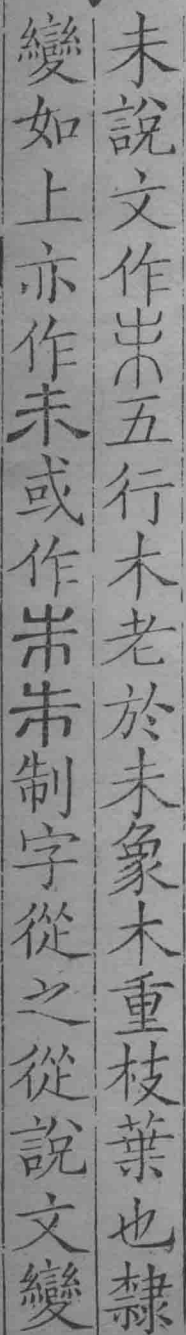 未說文作𣎓五行木老於未象木重枝葉也隸
變如上亦作未或作制字從之從說文變